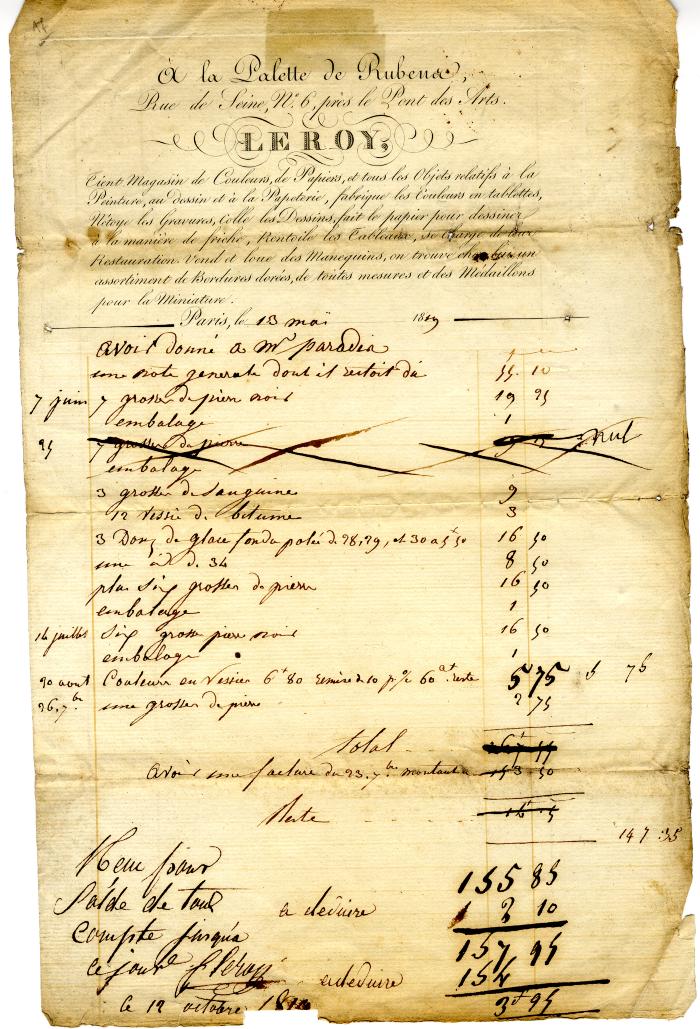 À la Palette de Rubens,
Rue de Seine, N.º 6, près le Pont des Arts.
LEROY,
Tient Magasin de Couleurs, de Papiers, et tous les Objets relatifs à la
Peinture, au dessin et à la Papeterie, fabrique les Couleurs en tablettes,
Nétoye les Gravures, Colle les Dessins, fait le papier pour dessiner
à la manière de friche, Rentoile les Tableaux, se charge de leur
Restauration. Vend et loue des Manequins, on trouve chez lui un
assortiment de Bordures dorées, de toutes mesures et des Médaillons
pour la Miniature.
Paris, le 13 mai 1819
avoir donné a Mr paradis
une note generale dont il restoit du 55 10
7 juin 7 grosses de pierre noir 19 25
embalage 1
25 7 grosses de pierre nul
embalage
3 grosses de Sanguine 9
12 vessie de bitume 3
3 Douz de glace fondu polée de 28, 29, et 30 a 5f 50 16 50
une id d. 34 8 50
plus six grosses de pierre 16 50
embalage 1
14 juillet six grosse pierre noir 16 50
embalage 1
20 aout Couleurs en vessies 6f 80 remise de 10 p% 60 reste 5 75 6 75
26, 7bre une grosse de pierre 2 75
total
avoir une facture du 23, 7bre montant 153 50
Reste
147 35
Reçu pour
Solde de tout 155 85
a deduire 10
compte jusqu'a
157 95
ce jour Leroy a deduire 154
le 12 octobre 3f 95